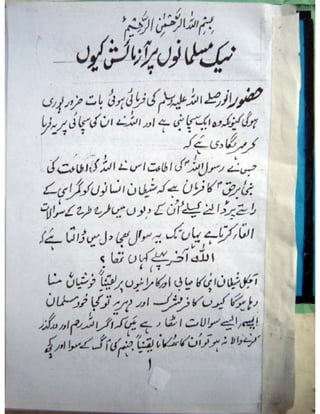 بسم اللہ الرحمٰن الرحیم
نیک مسلمانوں پر آزمائش کیوں
حضور انور صلے اللہ علیہ وسلم کی فرمائی ہوئی بات ضرور پوری
ہوگی کیونکہ وہ ایک سچا نبی ہے اور اللہ نے ان کی سچائی پر یہ فرما
کر مہر لگا دی ہے کہ
جس نے رسول اللہ کی اطاعت اس نے اللہ کی اطاعت کی
نبی برحق کا فرمان ہے کہ شیطان انسانوں کو گمراہی کے
راستے پر ڈالنے کیلئے اُن کے دلوں میں طرح طرح کے سوالات
القاء کرتا ہے یہاں تک یہ سوال بھی دل میں ڈالتا ہے کہ
اللہ آخر پہلے کہاں تھا ؟
آجکل شیطان اپنی کامیابی اور کامرانیوں پر یقیناً خوشیاں منا
رہا ہوگا کیوں کافر مشرک اور دہریہ تو کجا خود مسلمان
ایسے ایسے سوالات اٹھا رہے ہیں کہ اگر اللہ رحم اور درگذر
کرنے والا نہ ہو تو اُن کا ٹھکانا یقیناً جہنم کی آگ کے سوا اور کچھ
۱